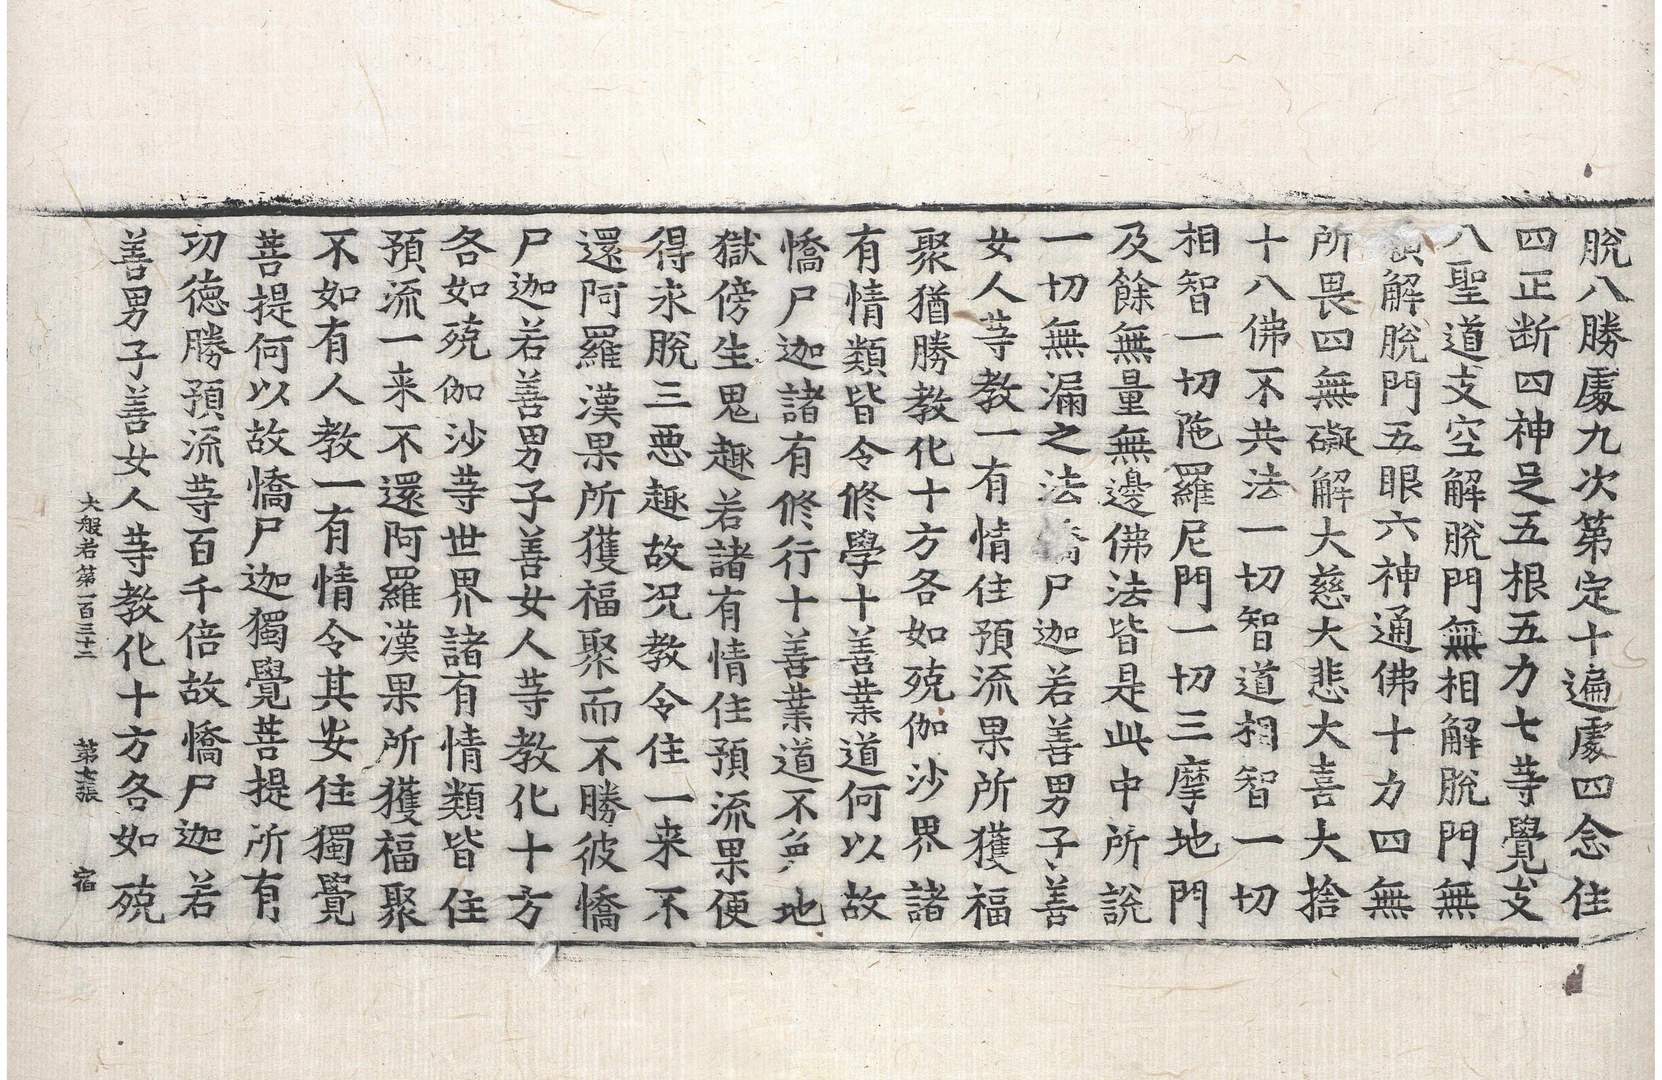 脫八勝處九次第定十遍處四念住
四正断四神足五根五力七等覺支
八聖道支空解脫門無相解脫門無
願解脫門五眼六神通佛十力四無
所畏四無礙解大慈大悲大喜大捨
十八佛不共法一切智道相智一切
相智一切陁羅尼門一切三摩地門
及餘無量無邊佛法皆是此中所說
一切無漏之法憍尸迦若善男子善
女人等教一有情住預流果所獲福
聚猶勝教化十方各如殑伽沙界諸
有情類皆令修學十善業道何以故
憍尸迦諸有修行十善業道不免地
獄傍生鬼趣若諸有情住預流果便
得永脫三惡趣故况教令住一来不
還阿羅漢果所獲福聚而不勝彼憍
尸迦若善男子善女人等教化十方
各如殑伽沙等世界諸有情類皆住
預流一来不還阿羅漢果所獲福聚
不如有人教一有情令其安住獨覺
菩提何以故憍尸迦獨覺菩提所有
功德勝預流等百千倍故憍尸迦若
善男子善女人等教化十方各如殑
大般若第一百三十二 第七張 宿